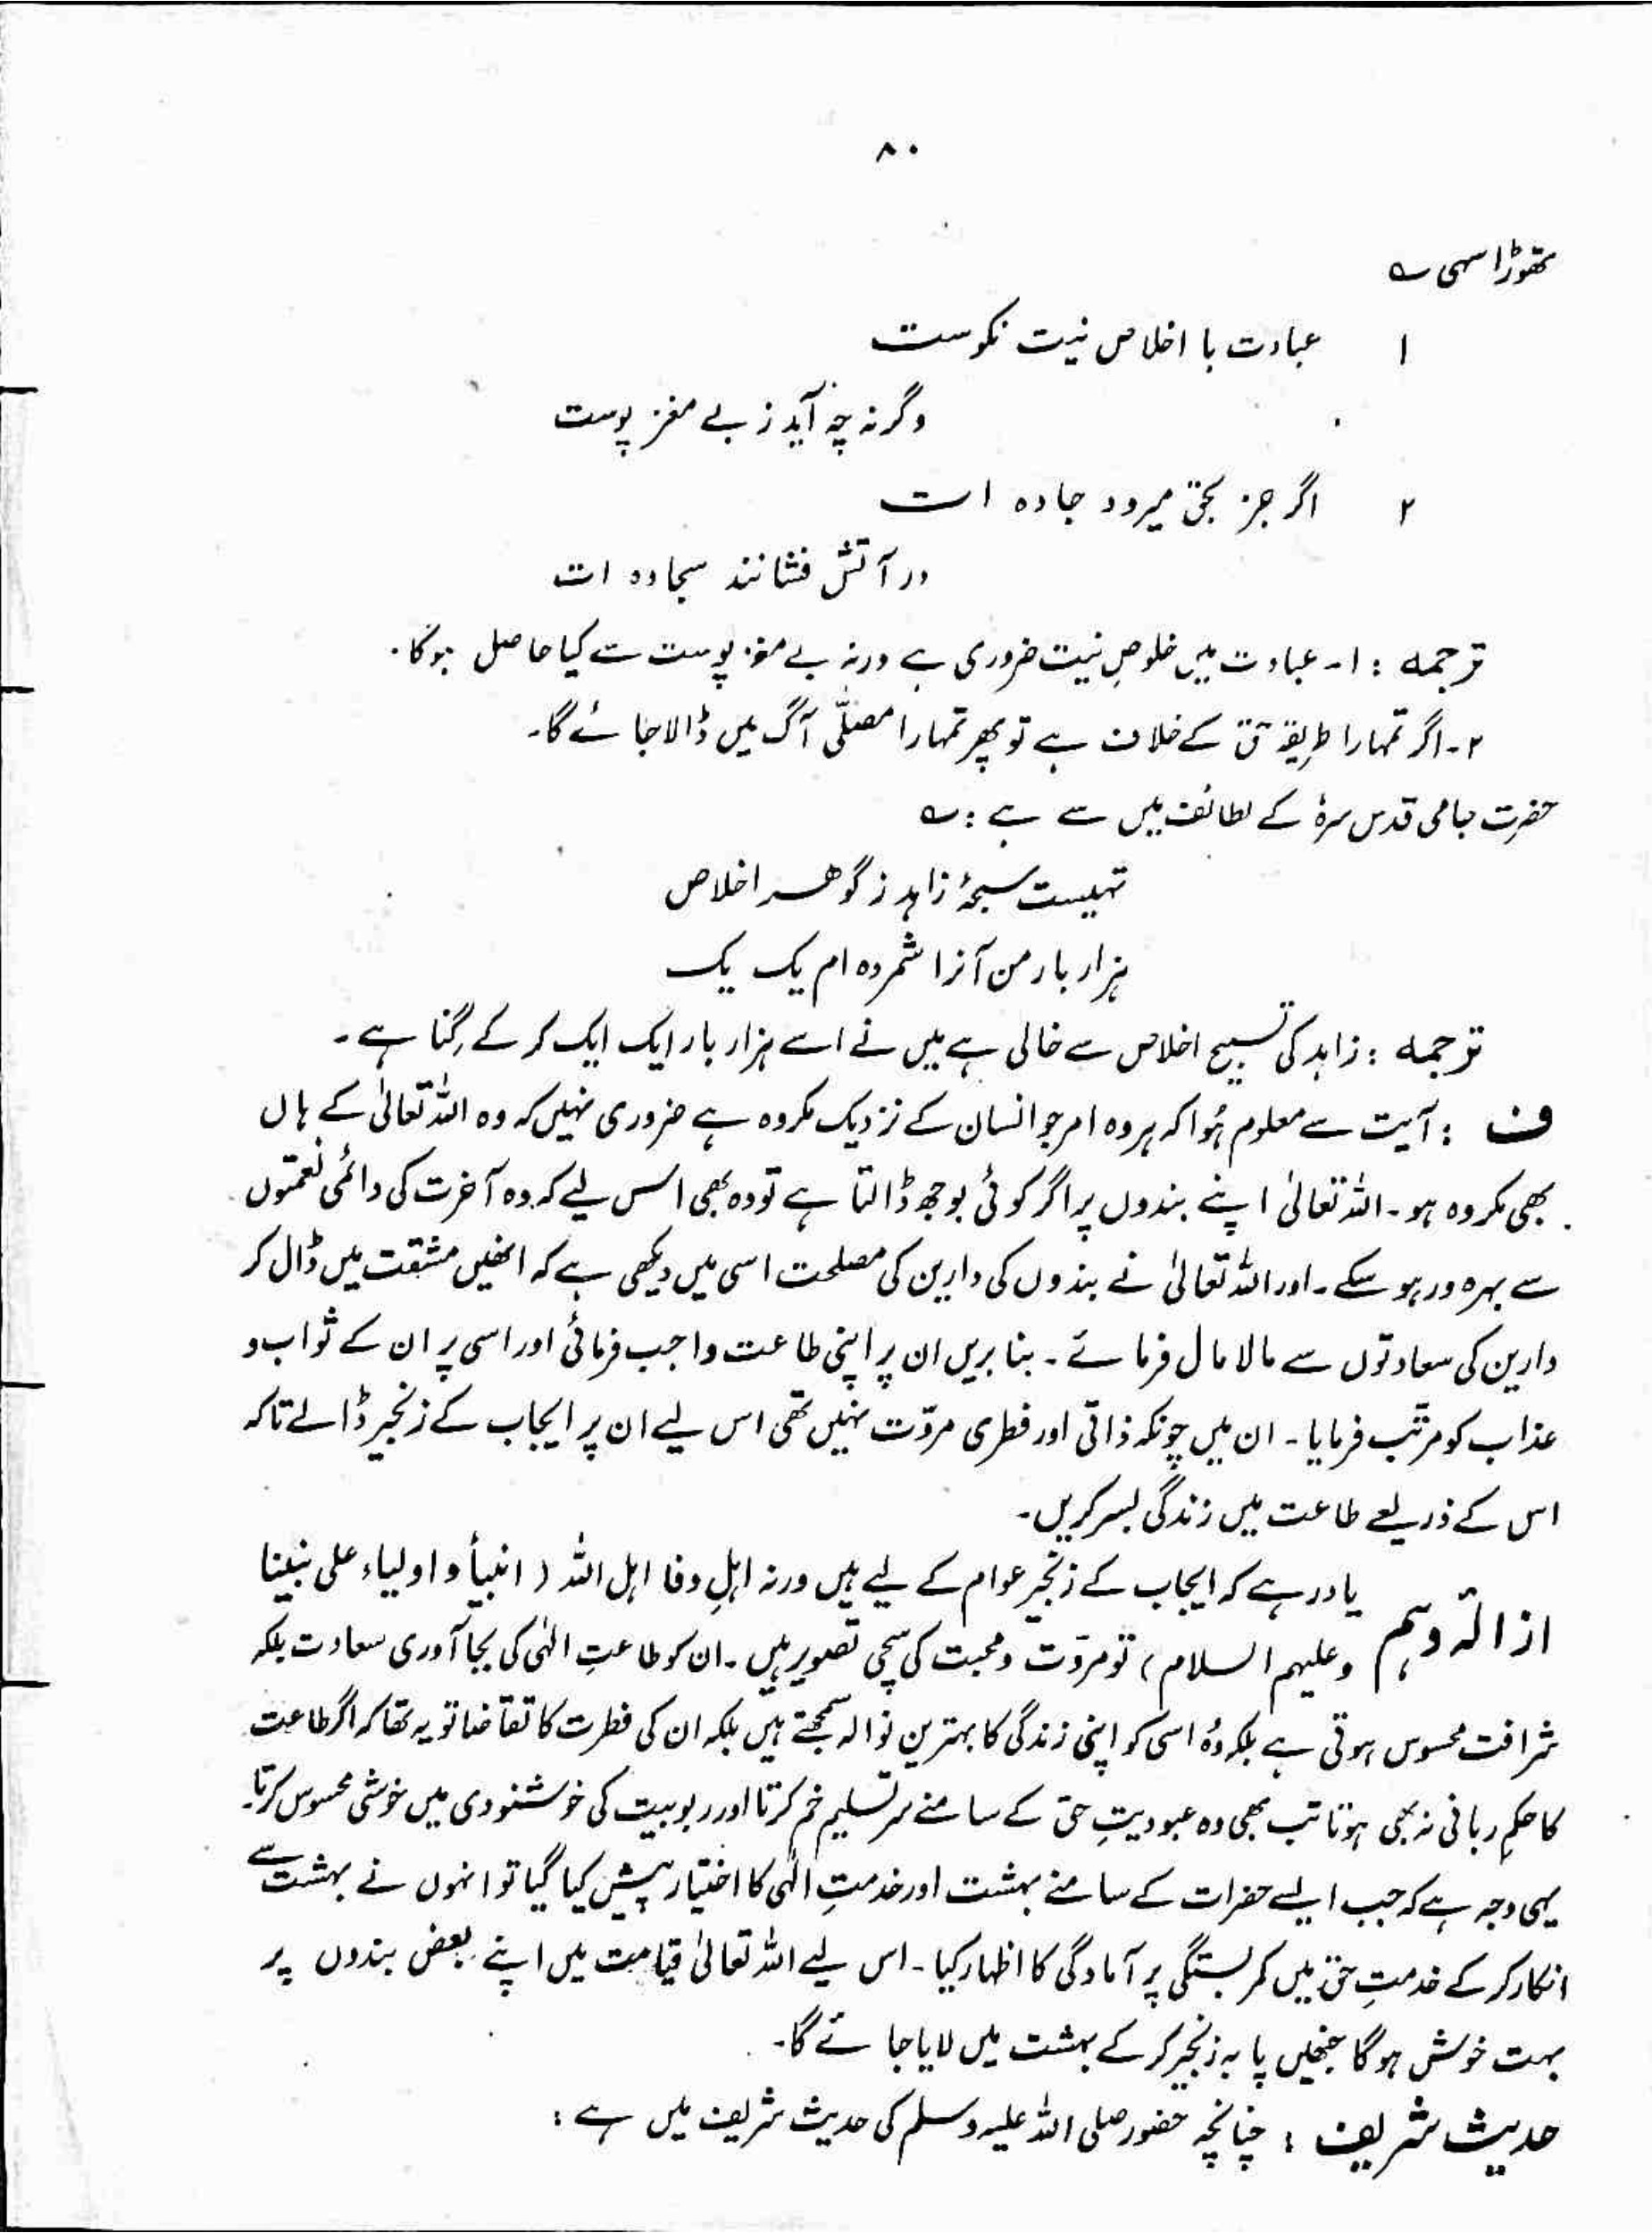 ۸۰
تھوڑا سہی ؎
۱ عبادت با اخلاص نیت نکوست
وگرنہ چہ آید ز بے مغز پوست
۲ اگر جز بحق میرود جادہ ات
در آتش فشانند سجادہ ات
ترجمہ : ۱۔ عبادت میں خلوصِ نیت ضروری ہے ورنہ بے مغز پوست سے کیا حاصل ہوگا.
۲۔ اگر تمہارا طریقہ حق کے خلاف ہے تو پھر تمہارا مصلّٰی آگ میں ڈالا جائے گا۔
حضرت جامی قدس سرہٗ کے لطائف میں سے ہے : ؎
تہیست سبحۂ زاہد ز گوھر اخلاص
ہزار بار من آنرا شمردہ ام یک یک
ترجمہ : زاہد کی تسبیح اخلاص سے خالی ہے میں نے اسے ہزار بار ایک ایک کر کے گِنا ہے ۔
ف : آیت سے معلوم ہُوا کہ ہر وہ امر جو انسان کے نزدیک مکروہ ہے ضروری نہیں کہ وہ اللہ تعالیٰ کے ہاں
بھی مکروہ ہو ۔ اللہ تعالیٰ اپنے بندوں پر اگر کوئی بوجھ ڈالتا ہے تو وہ بھی اس لیے کہ وہ آخرت کی دائمی نعمتوں
سے بہرہ ور ہو سکے ۔ اور اللہ تعالیٰ نے بندوں کی دارین کی مصلحت اسی میں دیکھی ہے کہ انھیں مشقت میں ڈال کر
دارین کی سعادتوں سے مالا مال فرمائے ۔ بنا بریں ان پر اپنی طاعت واجب فرمائی اور اسی پر ان کے ثواب و
عذاب کو مرتّب فرمایا ۔ ان میں چونکہ ذاتی اور فطری مروّت نہیں تھی اس لیے ان پر ایجاب کے زنجیر ڈالے تاکہ
اس کے ذریعے طاعت میں زندگی بسر کریں۔
ازالۂ وہم یاد رہے کہ ایجاب کے زنجیر عوام کے لیے ہیں ورنہ اہلِ وفا اہل اللہ ( انبیأ و اولیاء علیٰ نبینا
وعلیہم السلام ) تو مروّت و محبت کی سچی تصویر ہیں ۔ ان کو طاعتِ الٰہی کی بجا آوری سعادت بلکہ
شرافت محسوس ہوتی ہے بلکہ وُہ اسی کو اپنی زندگی کا بہترین نوالہ سمجھتے ہیں بلکہ ان کی فطرت کا تقاضا تو یہ تھا کہ اگر طاعت
کا حکمِ ربانی نہ بھی ہوتا تب بھی وہ عبودیتِ حق کے سامنے سرِ تسلیم خم کرتا اور ربوبیت کی خوشنودی میں خوشی محسوس کرتا۔
یہی وجہ ہے کہ جب ایسے حضرات کے سامنے بہشت اور خدمتِ الٰہی کا اختیار پیش کیا گیا تو انہوں نے بہشت سے
انکار کر کے خدمتِ حق میں کمر بستگی پر آمادگی کا اظہار کیا ۔ اس لیے اللہ تعالیٰ قیامت میں اپنے بعض بندوں پر
بہت خوش ہوگا جنھیں پا بہ زنجیر کر کے بہشت میں لایا جائے گا۔
حدیث شریف : چنانچہ حضور صلی اللہ علیہ وسلم کی حدیث شریف میں ہے :